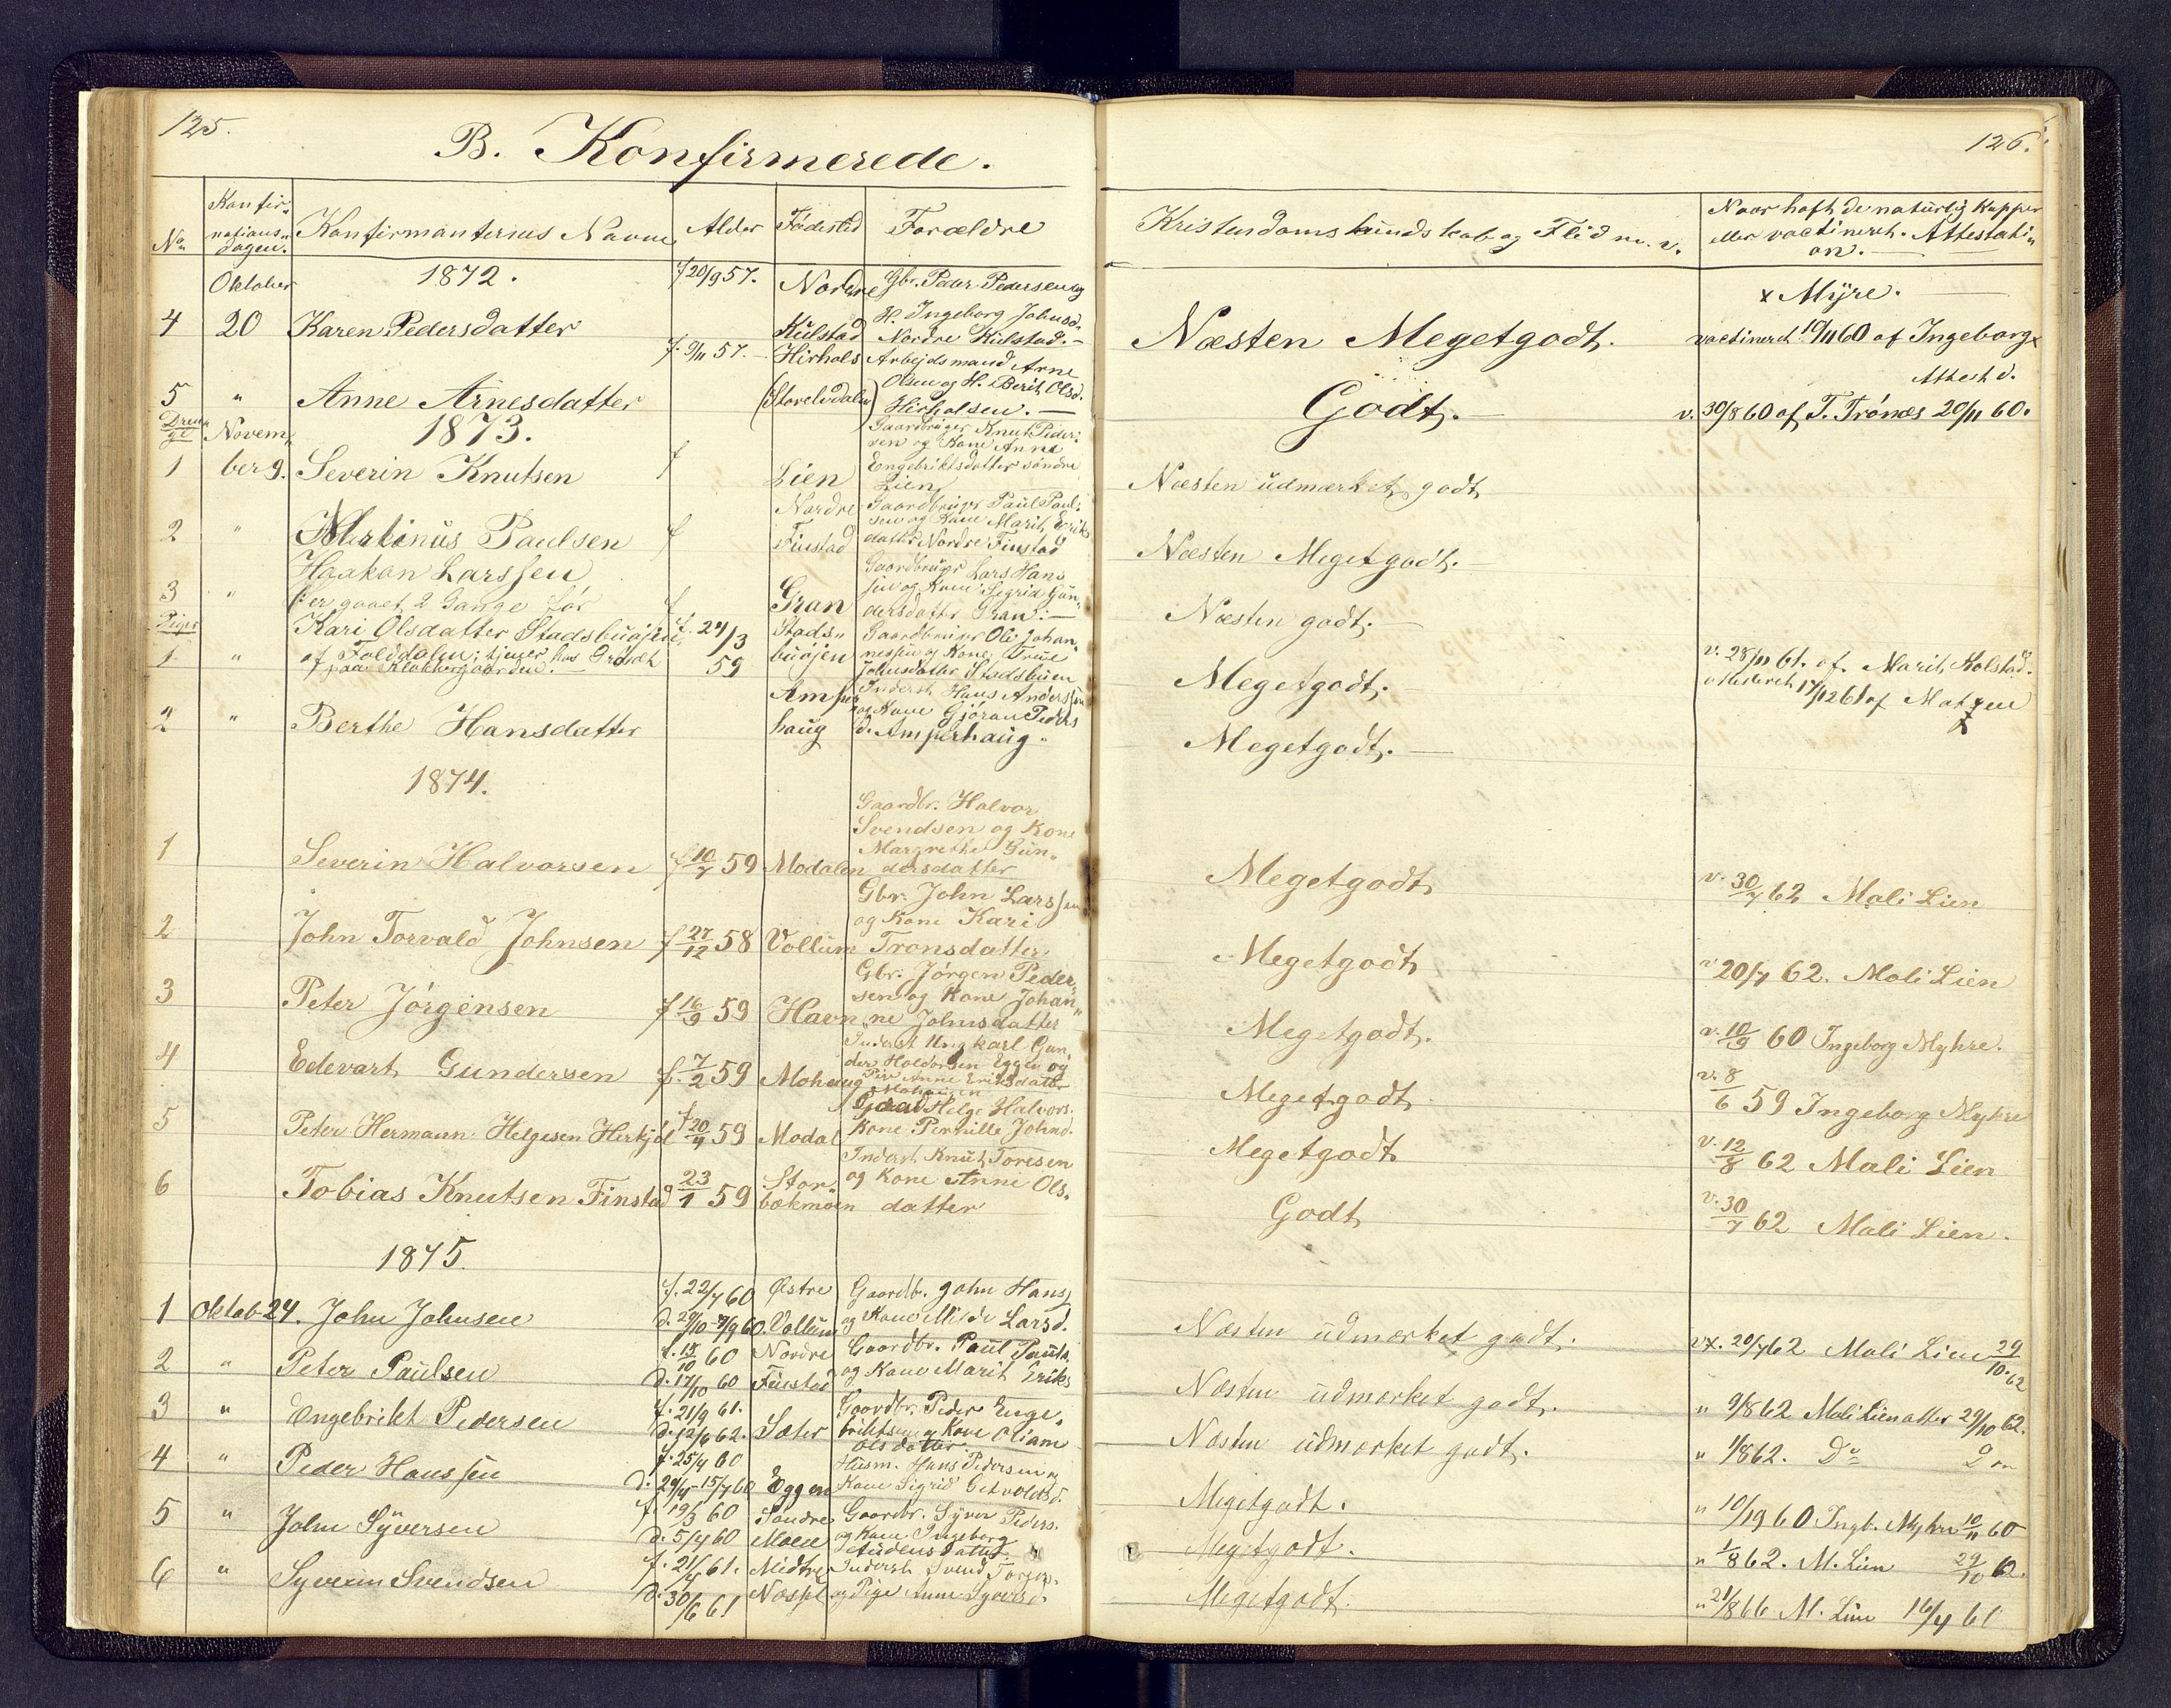 125.
B. Konfirmerede.
No
Konfir-
mations-
dagen.
Konfirmanternes Navne
Alder
Fødested
Forældre
Oktober
1872.
f 20/9 57.
Nordre
Gbr. Peder Pedersen og
H. Ingeborg Johnsd.
4
20
Karen Pedersdatter
Kulstad
Nordre Kulstad. —
f. 9/11 57.
Hirhols
Arbejdsmand Arne
Olsen og H. Berit Olsd.
5
"
Anne Arnesdatter
(Storelvdalen)
Hirholsen. —
Dren-
ge
Novem-
1873.
Gaardbruger Knut Peder-
sen og Kone Anne
1
ber 9.
Severin Knutsen
f
Lien
Engebriktsdatter søndre
Lien
Nordre
Gaardbruger Paul Paul-
sen og Kone Marit Eriks
2
"
Martinus Paulsen
f
Finstad
datter Nordre Finstad
Haakon Larssen
Gaardbruger Lars Hans
3
"
(er gaaet 2 Gange før
f
Gran
sen og Kone Sigrid Gun-
dersdatter Gran. —
Piger
Kari Olsdatter Stadsbuøjen
f. 24/3
Stads-
Gaardbruger Ole Johan-
1
"
af Folddalen; tjener hos Grøndt
59
buøjen
nessen og Kone, Frue
paa Klokkergaarden.
Johnsdatter Stadsbuen
Amper
Inderst Hans Anderssen
2
"
Berthe Hansdatter
haug
og Kone Gjøran Peders
d. Amperhaug.
1874.
Gaardbr. Halvor
Svendsen og Kone
Margrethe Gun-
1
Severin Halvorsen
f 10/7 59
Modalen
dersdatter
Gbr. John Larssen
og Kone Kari
2
John Torvald Johnsen
f 27/12 58
Vollum
Tronsdatter
Gbr. Jørgen Peder-
3
Peter Jørgensen
f 16/9 59
Havn
sen og Kone Johan-
ne Johnsdatter
Inderst Ungkarl Gun-
4
Edevart Gundersen
f. 7/2 59
Mohaug
der Haldorsen Eggen og
Pige Anne Eriksdatter
Mohaugen
5
Peter Hermann Helgesen Herkjøl
f 20/4 59
Modal
Helge Halvors.
Kone Pernille Johnd.
Inderst Knut Toresen
6
Tobias Knutsen Finstad
23/1 59
Stor-
bækmoen
og Kone Anne Ols-
datter
1875.
1
Oktob. 24.
John Johnsen
f. 22/7 60
d. 29/10 - 9/9 60.
Østre
Vollum
Gaardb. John Hans
og Kone Milde Larsd.
2
"
Peter Paulsen
f. 15/10 60
d. 17/10 60
Nordre
Finstad
Gaardbr. Paul Pauls.
og Kone Marit Eriks
3
"
Engebrikt Pedersen
f. 21/9 61.
d. 12/6 62.
Sæter
Gaardbr. Peder Enge-
briktsen og Kone Oliam
Olsdatter
4
"
Peder Hanssen
f. 25/4 60
d. 29/4 - 15/7 60
Eggen
Husm. Hans Pedersen og
Kone Sigrid
5
"
John Syversen
f. 19/3 60
d. 5/4 60
Søndre
Moen
Gaardbr. Syver Peders.
og Kone Ingeborg
6
"
Syverin Svendsen
f. 21/4 61.
d. 30/6 61
Midtre
Inderst Svend Torger.
og Pige Anne Syversd.
126.
Kristendomskundskab og Flid m. v.
Naar haft de naturlig Kopper
eller vaccineret. Attestati-
on.
x Myre. —
Næsten Megetgodt.
vaccineret 10/11 60 af Ingeborg x
Attest d.
Godt. —
v. 30/8 60 af T. Trønæs 20/11 60.
Næsten udmærket godt
Næsten Megetgodt. —
Næsten godt. —
Megetgodt. —
v. 28/11 61. af Marit Kolstad.
attesteret 17/12 61 af Matzen
x
Megetgodt. —
Megetgodt
v. 30/7 62 Mali Lien
Megetgodt
v 20/7 62. Mali Lien
Megetgodt.
v. 10/9 60 Ingeborg Myhre.
Megetgodt
v. 8/6 59 Ingeborg Myhre
Megetgodt
v. 12/8 62 Mali Lien
Godt
v. 30/7 62 Mali Lien.
Næsten udmærket godt.
vx. 20/7 62 Mali Lien 29/10. 62
Næsten udmærket godt.
" 9/8 62 Mali Lien atter 29/10 62.
Næsten udmærket godt.
" 1/8 62. Do Do
Megetgodt.
" 10/19 60 Ingb. Myhre 10/11 60
Megetgodt.
" 1/8 62. M. Lien 29/10 62.
Megetgodt.
" 21/8 66 M. Lien 16/4 61